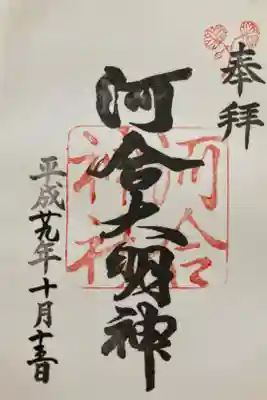 奉拝
河合大明神
河合
神社
平成廿九年十月十五日